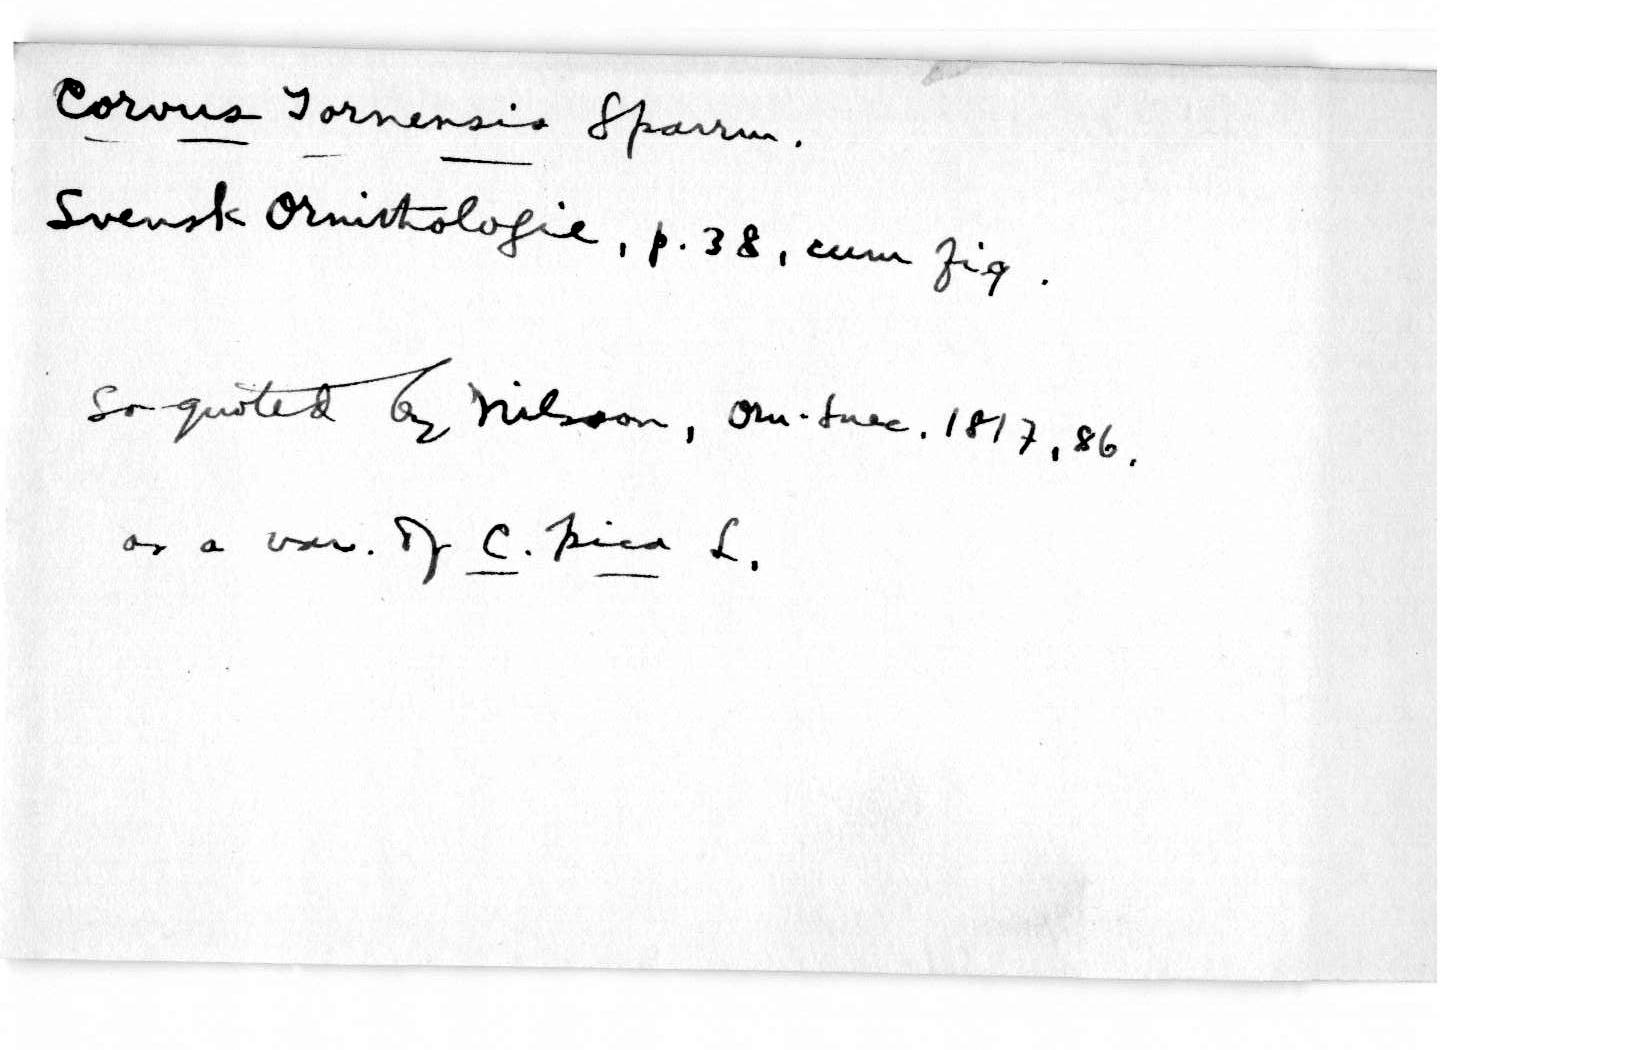 Corvus Tornensis Sparrm.
Svensk Ornithologie, p. 38, cum fig.
So quoted by Nilsson, Orn. Suec. 1817, 86.
as a var. of C. pica L.